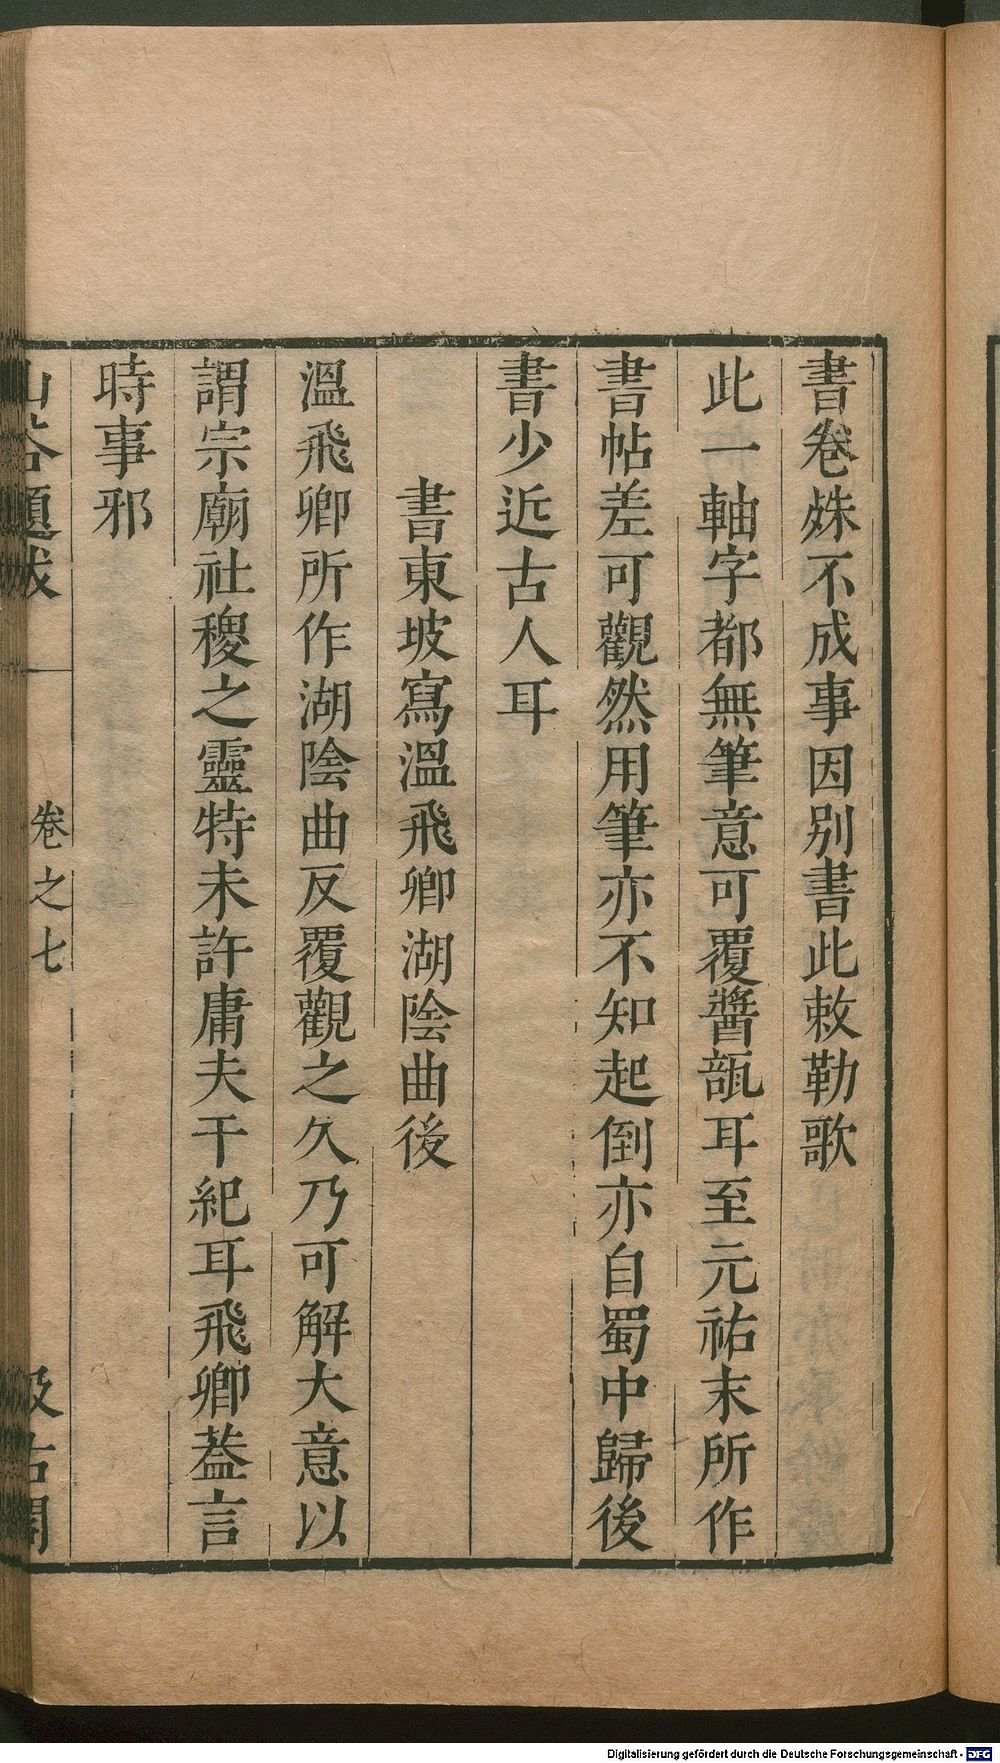 書卷殊不成事因別書此敕勒歌
此一軸字都無筆意可覆醬瓿耳至元祐末所作
書帖差可觀然用筆亦不知起倒亦自蜀中歸後
書少近古人耳
書東坡寫溫飛卿湖陰曲後
溫飛卿所作湖陰曲反覆觀之久乃可解大意以
謂宗廟社稷之靈特未許庸夫干紀耳飛卿葢言
時事邪
山谷題跋 卷之七 汲古閣
Digitalisierung gefördert durch die Deutsche Forschungsgemeinschaft - DFG